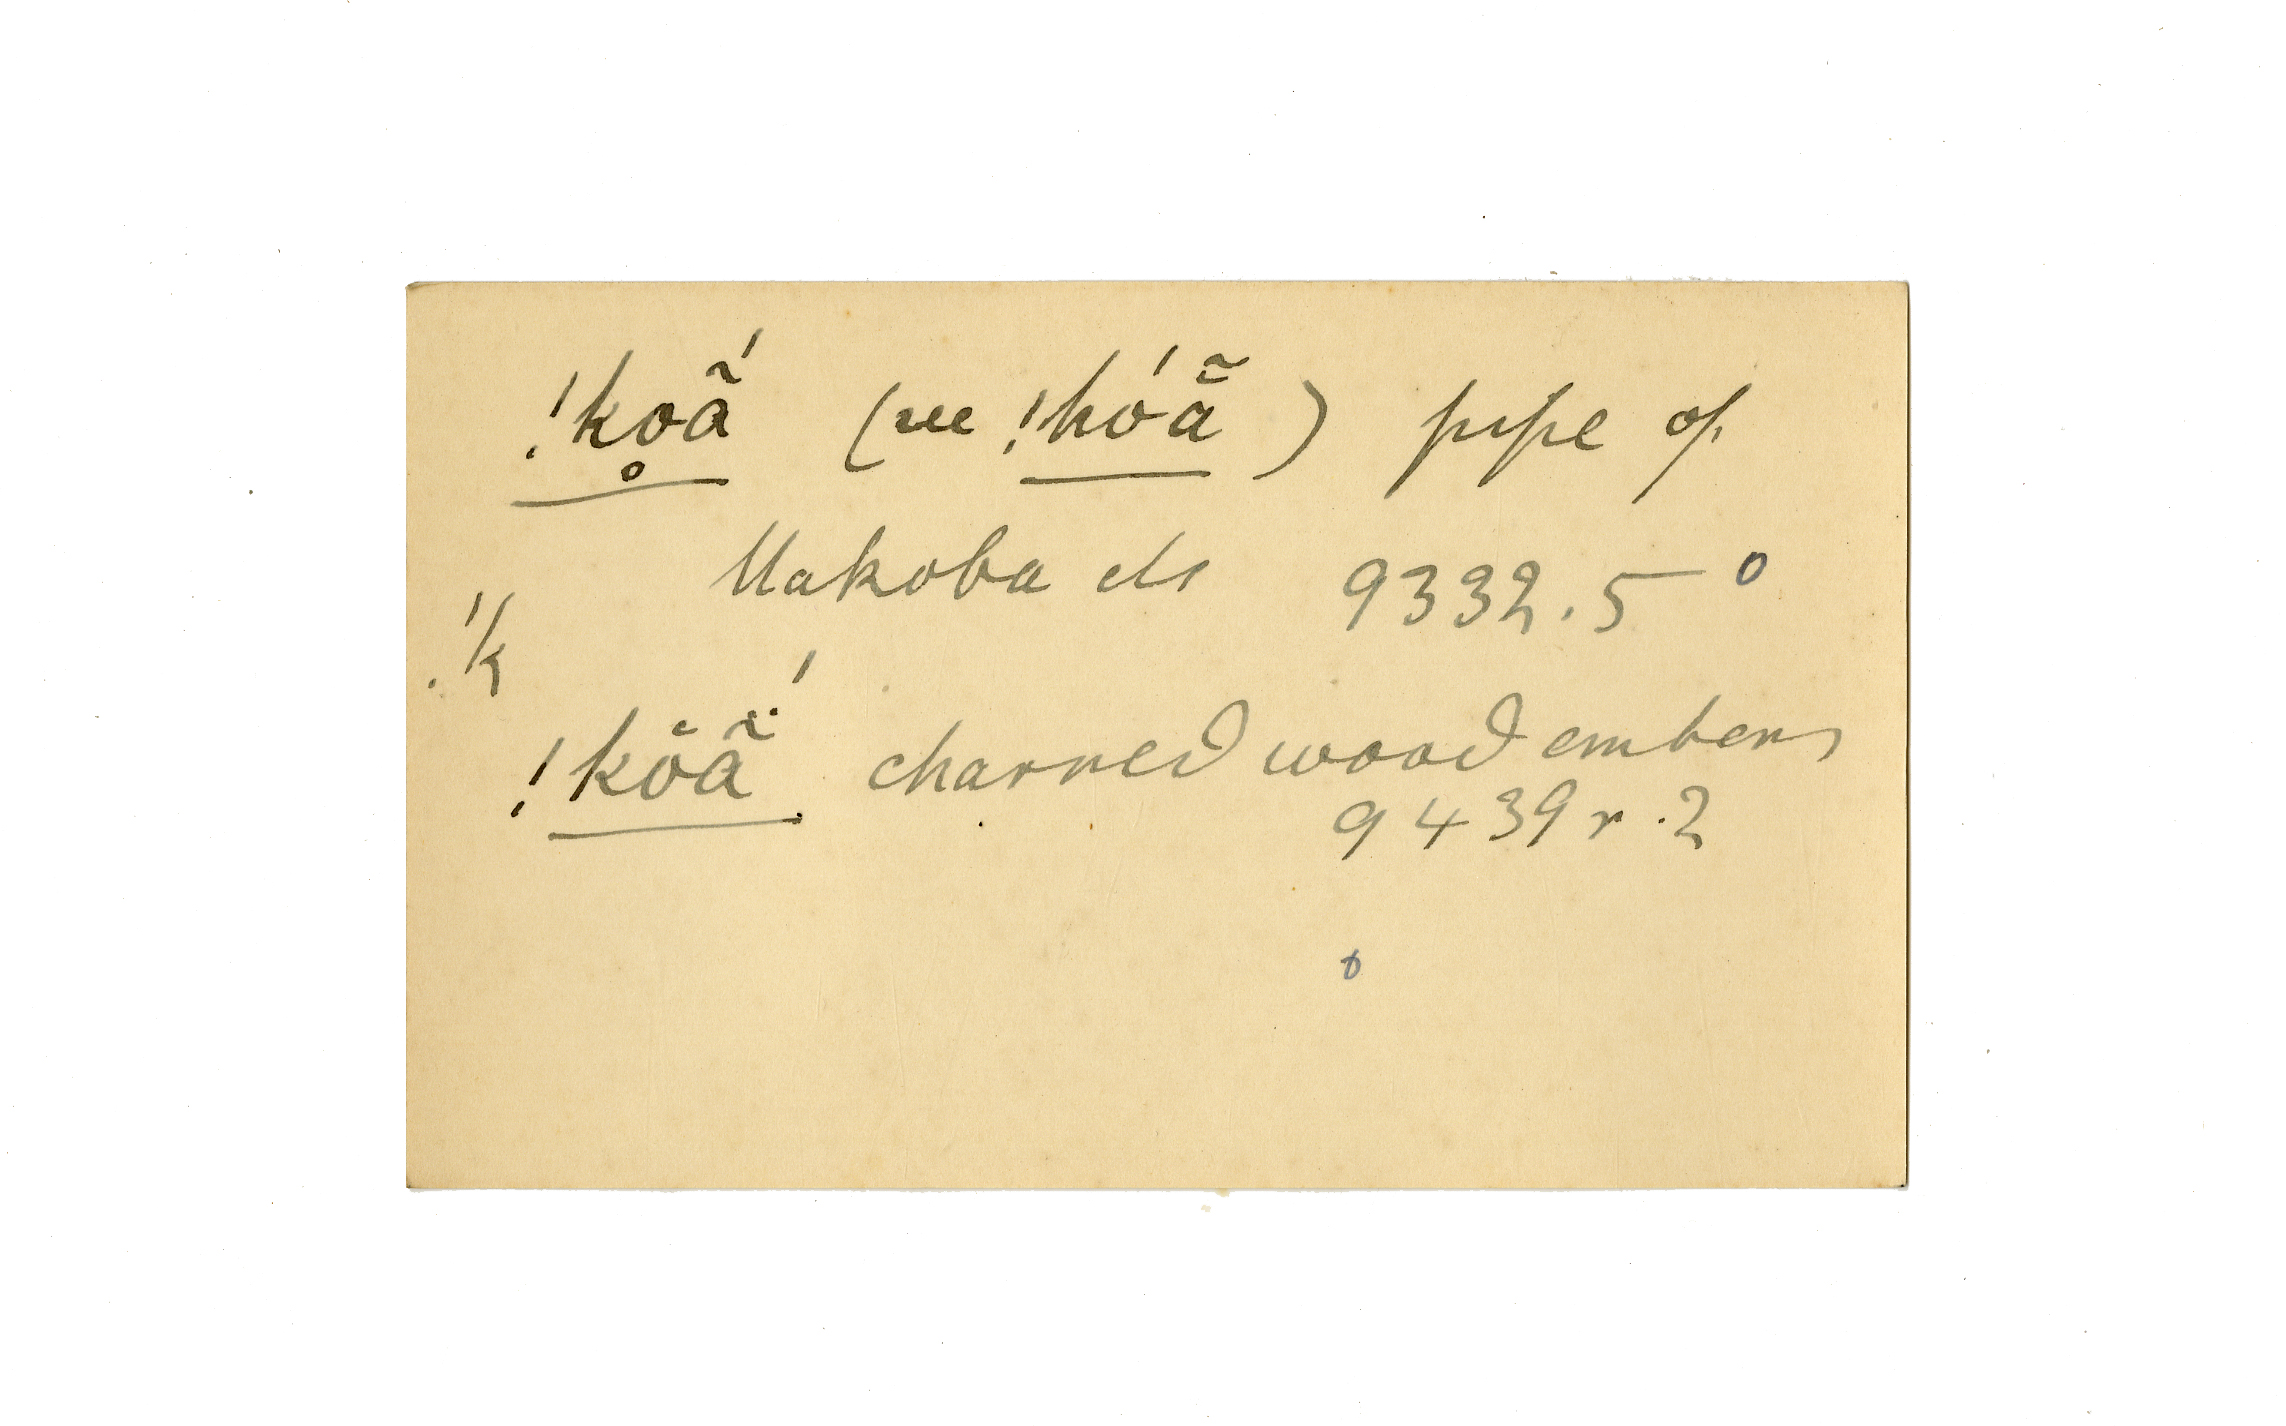 !ko̥ã́ (see !kóā̃) pipe of
Makoba etc 9332.5 o
!k
!kŏã̈́ charred wood embers
9439r.2